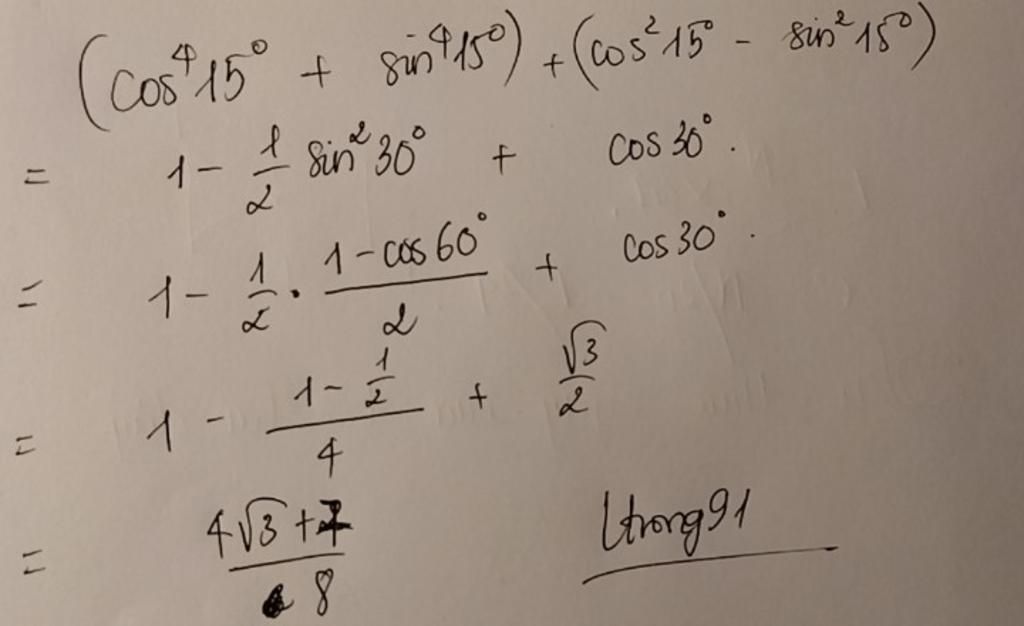 (cos⁴15° + sin⁴15°) + (cos²15° - sin²15°)
= 1 - 1/2 sin²30° + cos30°.
= 1 - 1/2 . (1-cos60°)/2 + cos30°.
= 1 - (1 - 1/2)/4 + √3/2
= (4√3+7)/8 Ltrong91